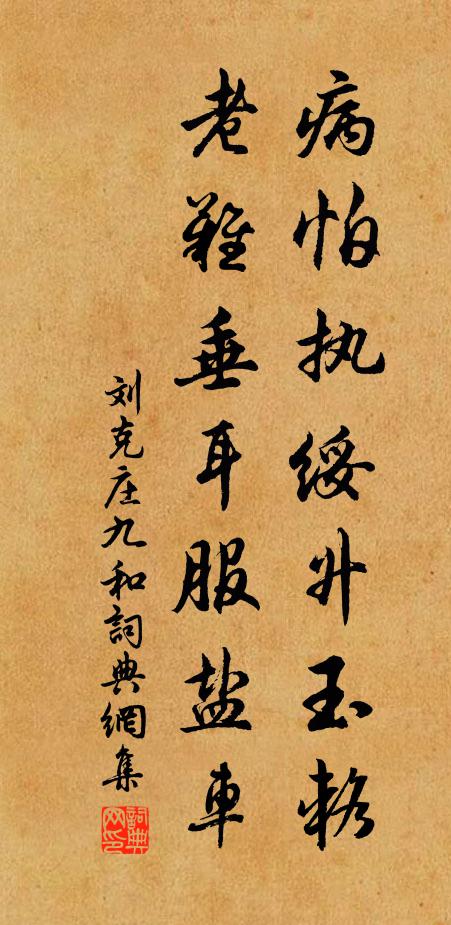 病怕执绥升玉輅
老難垂耳服盐車
刘克庄九和詞典網集
詞典网印